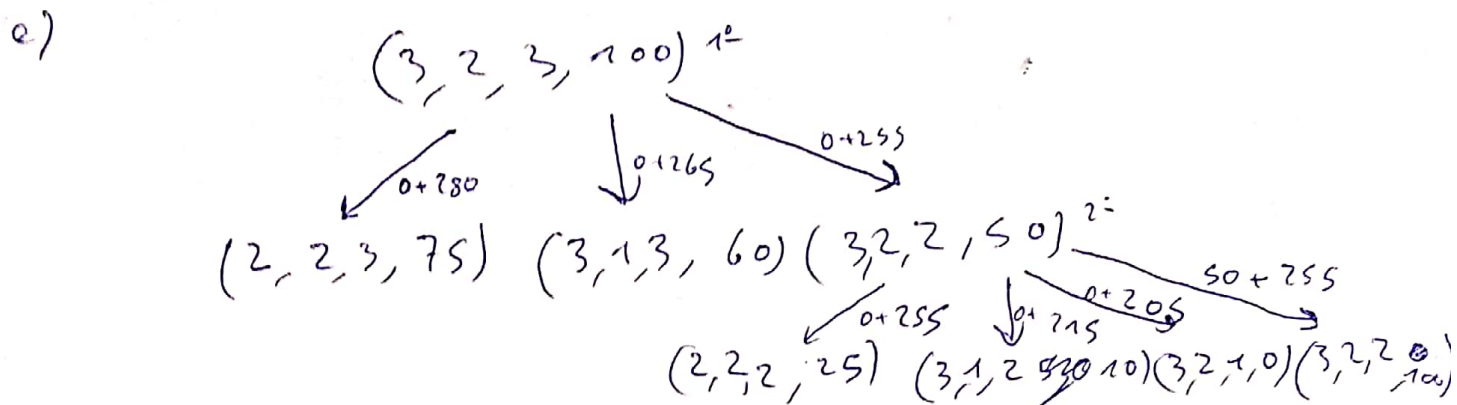 e)
(3, 2, 3, 100) 1º
0+280 0+265 0+255
(2, 2, 3, 75) (3, 1, 3, 60) (3, 2, 2, 50) 2º
0+255 0+215 0+205 50+255
(2, 2, 2, 25) (3, 1, 2 10) (3, 2, 1, 0) (3, 2, 2, 100)